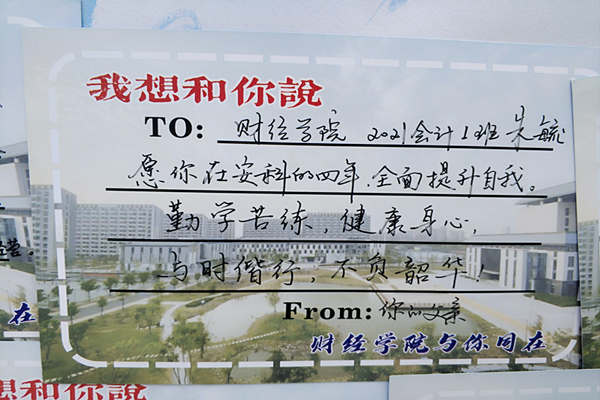 我想和你說
TO: 财经学院 2021会计1班 朱毓
愿你在安科的四年,全面提升自我。
勤学苦练,健康身心,
与时偕行,不负韶华!
From: 你的父亲
财经学院与你同在
在
想和你說